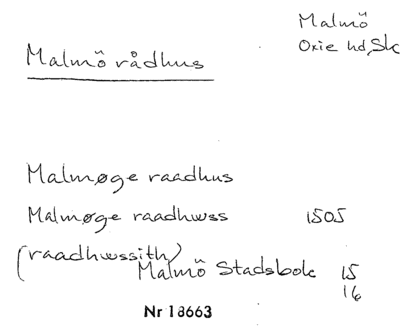 Malmö
Oxie hd, Sk
Malmö rådhus
Malmøge raadhus
Malmøge raadhwss 1505
(raadhwssith)
Malmö Stadsbok 15
16
Nr 18663